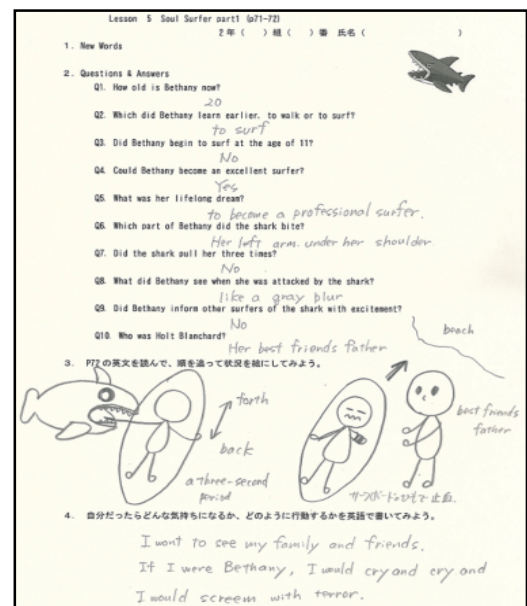 Lesson 5 Soul Surfer part1 (p71-72)
2年 ( ) 組 ( ) 番 氏名 ( )
1. New Words
2. Questions & Answers
Q1. How old is Bethany now?
20
Q2. Which did Bethany learn earlier, to walk or to surf?
to surf
Q3. Did Bethany begin to surf at the age of 11?
No
Q4. Could Bethany become an excellent surfer?
Yes
Q5. What was her lifelong dream?
to become a professional surfer.
Q6. Which part of Bethany did the shark bite?
Her left arm. under her shoulder
Q7. Did the shark pull her three times?
No
Q8. What did Bethany see when she was attacked by the shark?
like a gray blur
Q9. Did Bethany inform other surfers of the shark with excitement?
No
Q10. Who was Holt Blanchard?
Her best friends father
beach
3. P72の英文を読んで、順を追って状況を絵にしてみよう。
forth
back
a three-second
period
best friends
father
サーフボードのひもで止血
4. 自分だったらどんな気持ちになるか、どのように行動するかを英語で書いてみよう。
I want to see my family and friends.
If I were Bethany, I would cry and cry and
I would screem with terror.